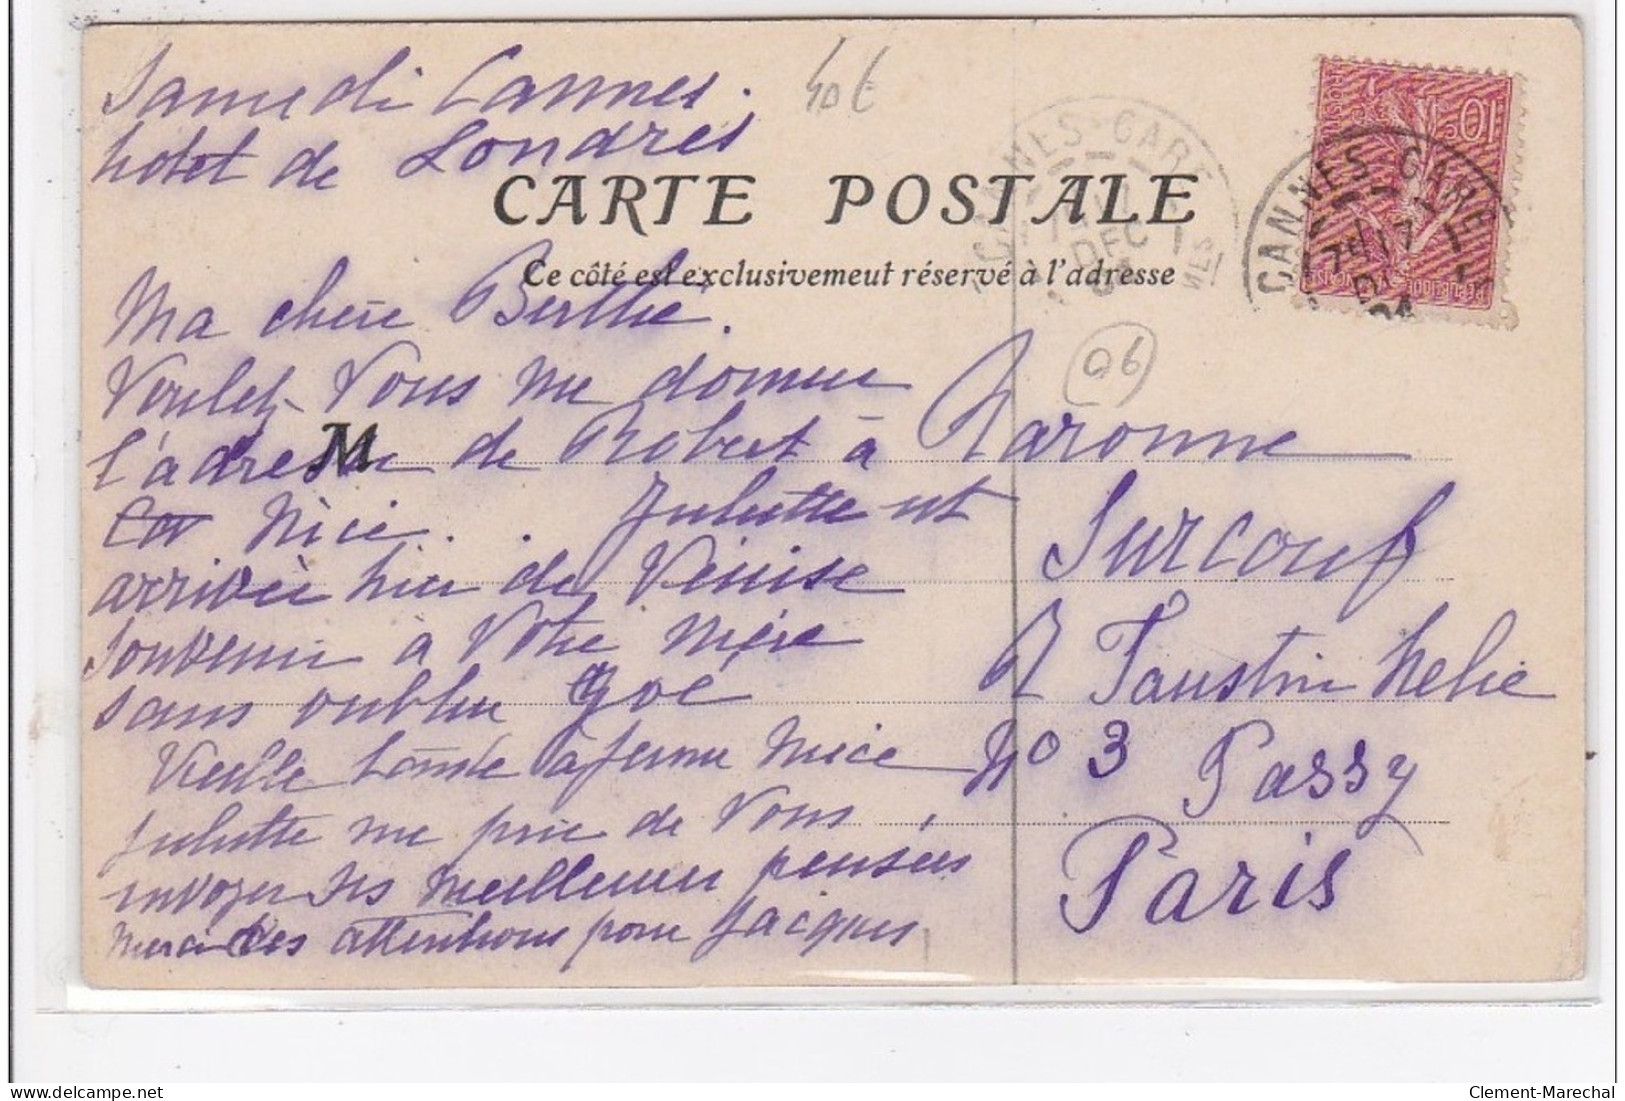 Samedi Cannes.
hotel de Londres
40€
CARTE POSTALE
Ce côté est exclusivement réservé à l'adresse
CANNES-GARE
CANNES GARE
10c
Ma chère Berthe.
Voulez Vous me donner
l'adresse de Robert à
M
Nice.. Juliette est
arrivée hier de Venise
Souvenir à Votre mère
sans oublier
Vieille
Juliette me prie de Vous
envoyer ses meilleures pensées
merci des attentions pour Jacques
06
Baronne
Surcouf
R Faustin Helie
No 3 Passy
Paris
Clement-Marechal